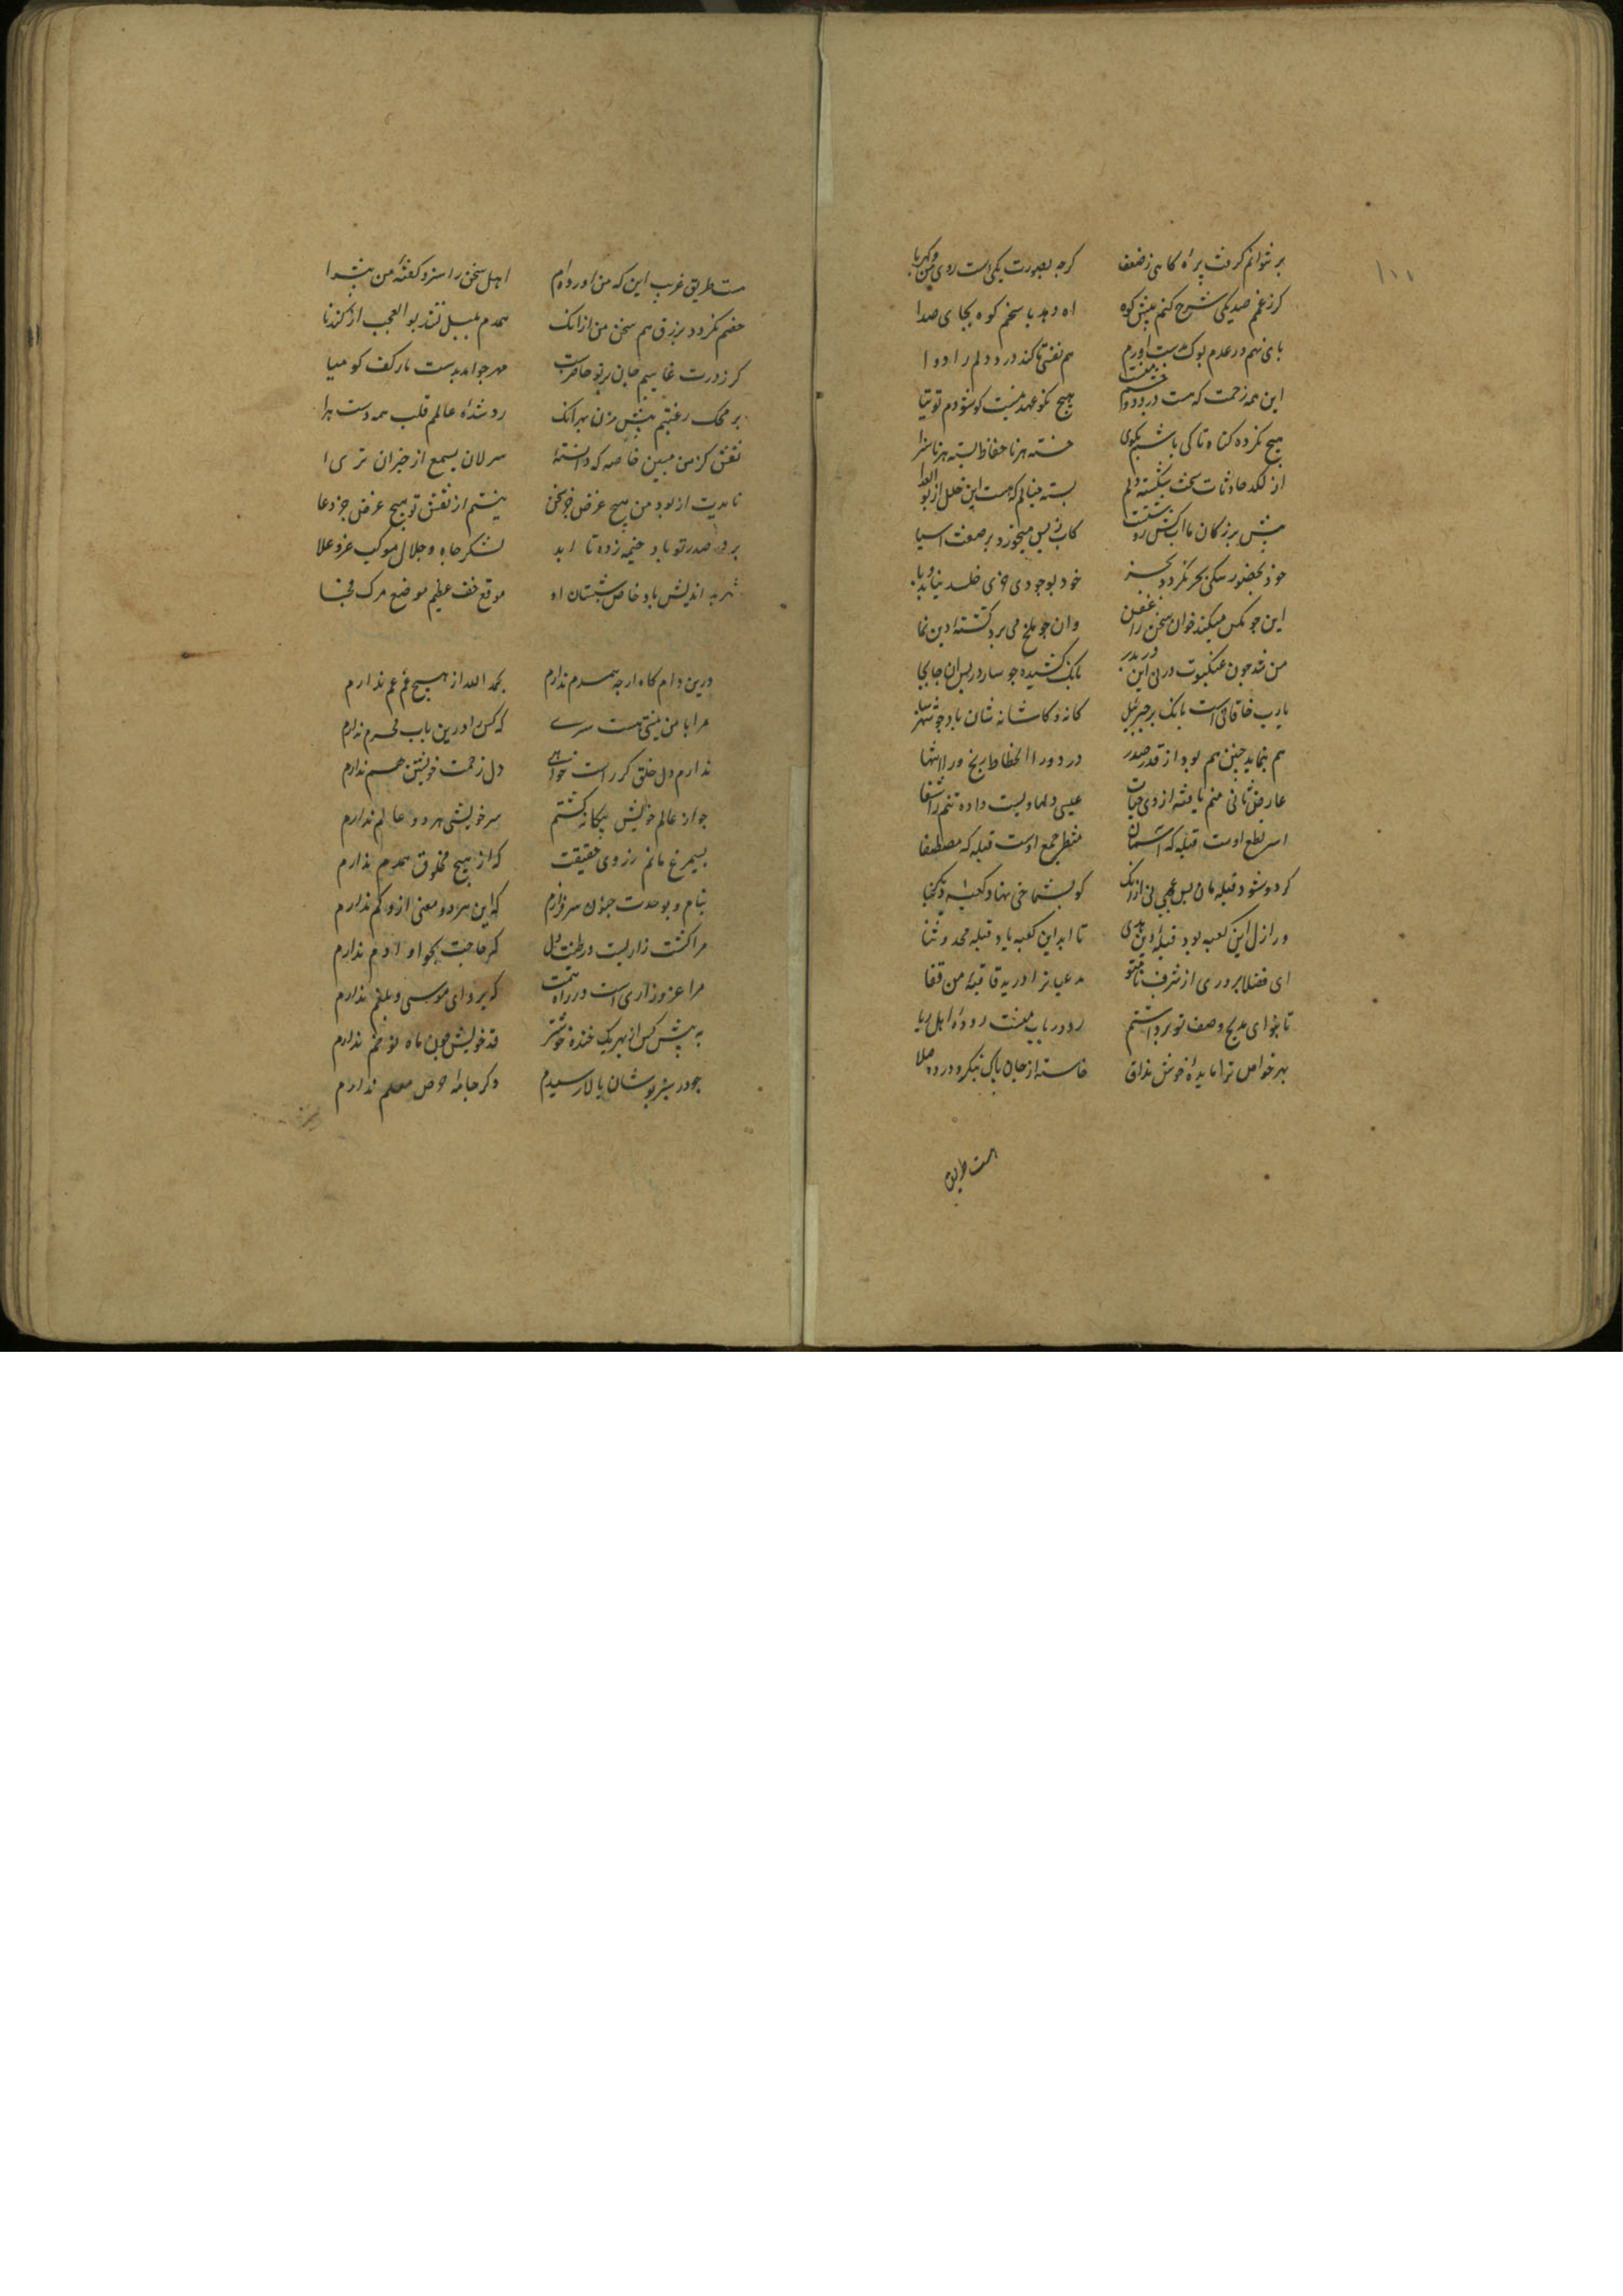 ۱۱۱
بر نتوانم گرفت پره کاهی ز ضعف گرچه بصورت یکی است روی من و کهربا
گر ز غمم صد یکی شرح کنم پیش کوه آه دهد پاسخم کوه بجای صدا
پای نهم در عدم بوک بدست آورم هم نفسی تا کند درد دلم را دوا
این همه زحمت که هست درد دو چشم منست هیچ نکو عهد نیست کو شودم توتیا
هیچ نکرده گناه تا کی باشم بگوی خسته هر ناحفاظ بسته هر ناسزا
از لگد حادثات سخت شکسته دلم بسته خیالم که هست این خلل از بوالعلا
پیش بزرگان ما آب کسی روشنست کاب ز پس میخورد بر صفت آسیا
خود بحضور سگی بحر نگردد نجس خود بوجود خری خلد نیابد وبا
این چو مگس میکند خوان سخن را عفن وان چو ملخ می برد کشته دین نما
من شده چون عنکبوت در پی این دربدر بانگ کشیده چو سار در پس آن جا بجا
یارب خاقانی است بانگ پر جبرئیل خانه و کاشانه شان باد چو شهر سبا
هم بنماید چنین هم بود از قدر صدر درد ورا انحطاط رنج ورا انتها
عارض ثانی منم یافته از وی حیات عیسی دلها ویست داده تنم را شفا
اسم لطیع اوست قبله گه آسمان منظر جمع اوست قبله گه مصطفا
گر دو شود قبله مان بس عجبی نی از آنک
در ازل این کعبه بود قبله آیین هدی تا ابد این کعبه باد قبله مجد و ثنا
ای فضلا پروری از شرف نام تو مدعیانرا درید قافیه من قفا
تا بنوای مدیح وصف تو برداشتم رود رباب منست روده اهل ریا
بهر خواص ترا مایده خوش مذاق خاسته از جان پاک نیک و درده صلا
هست طریق
هست طریق غریب این که من آورده ام اهل سخن را سزد گفته من پیشوا
خصم نگردد بزرق هم سخن من از آنک همدم بلبل نشد بوالعجب از گندنا
گر ز درت غایبم جان بر تو حاضرست مهر چو آمد بدست مار کف کو میا
بر محک رغبتم بیش مزن بهر آنک رد شده عالمم قلب همه دست ها
نقش کژ من مبین خاصه که دانسته سر لان یسمع از خیزران تری ا
نامدیت از بود من هیچ غرض جز سخن نیستم از نقش تو هیچ غرض جز دعا
بر در صدر تو باد خیمه زده تا ابد لشکر جاه و جلال موکب عز و علا
شهر بد اندیش باد خاص شبستان او موقع خسف عظیم موضع مرگ فجا
درین دامگاه ارچه همدم ندارم بحمد الله از هیچ غم غم ندارم
مرا با من نیستی هست سری که کس را درین باب محرم ندارم
ندارم دل خلق گر راست خواهی دل زحمت خویشتن هم ندارم
چو از عالم خویش بیگانه گشتم سر خویشی هر دو عالم ندارم
بسیمرغ مانم ز روی حقیقت که از هیچ مخلوق همدم ندارم
بنام و بوحدت چنو سر فرازم که این هر دو معنی ازو کم ندارم
مرا کشت زاریست در طینت دل که حاجت بحوا و آدم ندارم
مرا عز و زاری است در راه همت که پروای موسی و بلعم ندارم
به پیش کس از بهر یک خنده خوشتر قد خویش چون ماه نو خم ندارم
چو در سبز پوشان بالا رسیدم دگر جامه حرص معلم ندارم